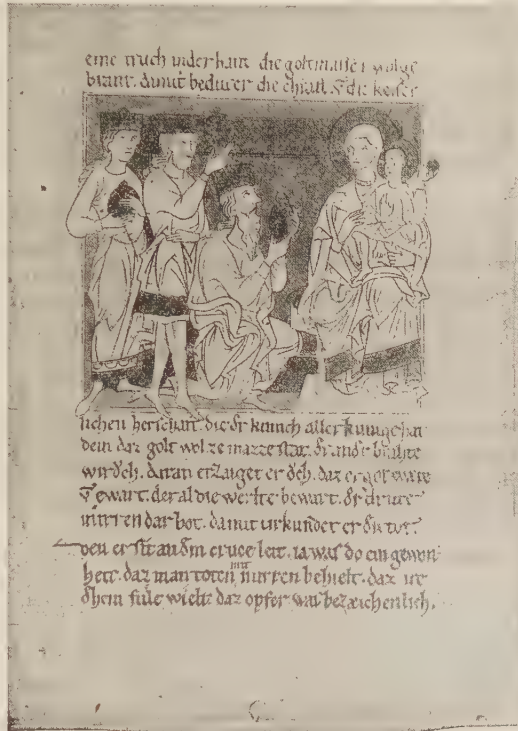 eine truch in der hant die golt
brant. damit bedutet er die chraft
lichen herschaft. die dr kunich aller kunige hat
dem daz golt wol ze mazze stat. dr andr brahte
wirŏch. daran erzaiget er ŏch. daz er got ware
ewart. der al die werlte bewart. dr drite
mirren dar bot. damit urkundet er den tot.
den er sit an dm cruce leit. ia was do ein gewon
heit. daz man toten mit mirren behielt. daz ir
dhein fule wielt. daz opfer was bezæichenlich.